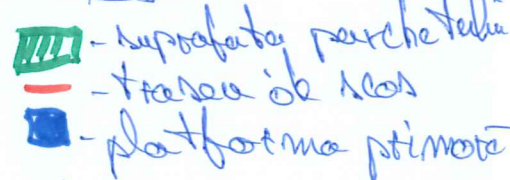 - suprafata parchetului
- traseu de scos
- platforma primară